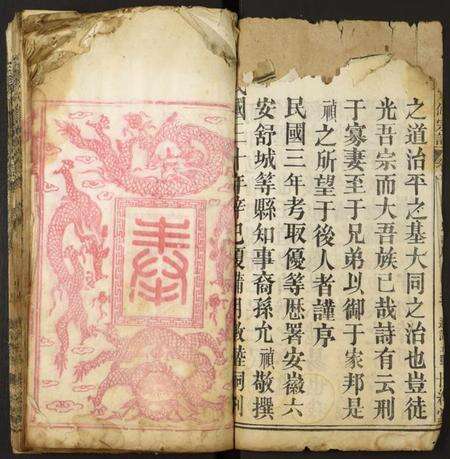 之道治平之基大同之治也豈徒
光吾宗而大吾族已哉詩有云刑
于寡妻至于兄弟以御于家邦是
禎之所望于後人者謹序
民國三年考取優等歷署安徽六
安舒城等縣知事裔孫允禎敬撰
國二十年辛巳夏
奉